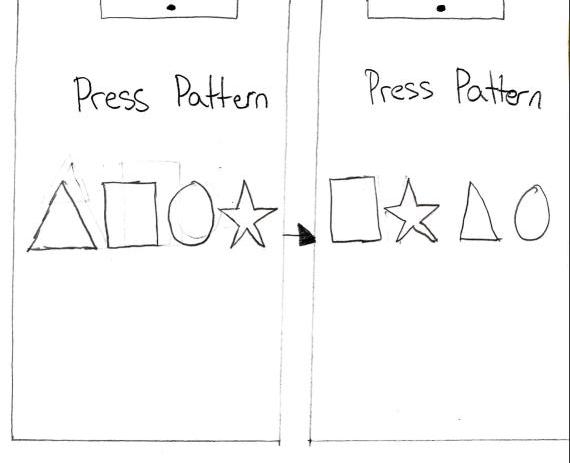 Press Pattern
Press Pattern